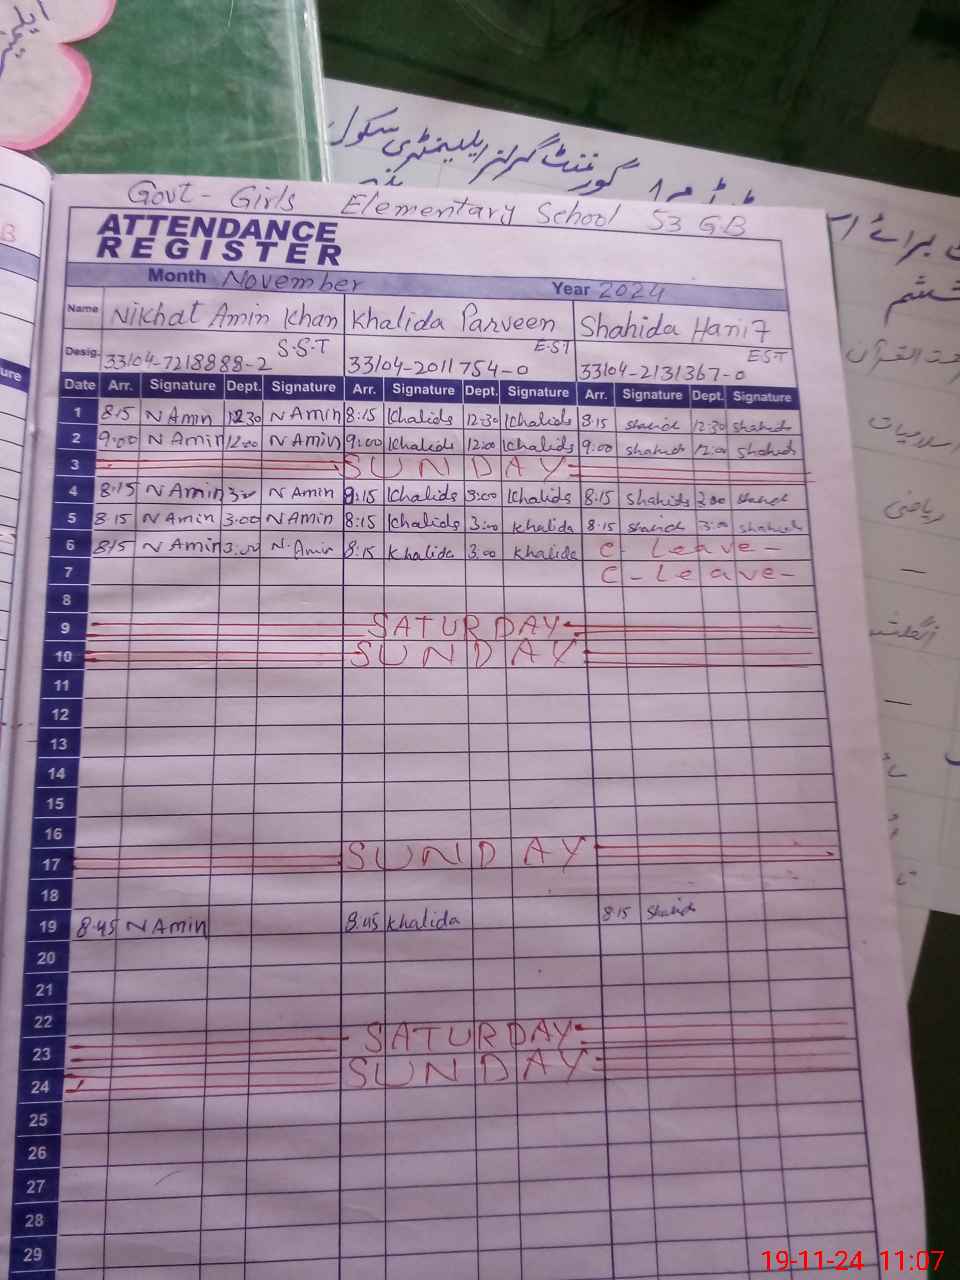 گورنمنٹ گرلز ایلیمنٹری سکول
Govt - Girls Elementary School 53 G.B
ATTENDANCE
REGISTER
Month November Year 2024
Name Nikhat Amin Khan Khalida Parveen Shahida Hanif
Desig. 33104-7218888-2 S.S.T 33104-2011754-0 E.S.T 33104-2131367-0 E.S.T
Date Arr. Signature Dept. Signature Arr. Signature Dept. Signature Arr. Signature Dept. Signature
1 8:15 N Amin 12:30 N Amin 8:15 Khalida 12:30 Khalida 8:15 Shahid 12:30 Shahid
2 9:00 N Amin 12:00 N Amin 9:00 Khalida 12:00 Khalida 9:00 Shahid 12:00 Shahid
3 SUNDAY
4 8:15 N Amin 3:00 N Amin 8:15 Khalida 3:00 Khalida 8:15 Shahid 3:00 Shahid
5 8:15 N Amin 3:00 N Amin 8:15 Khalida 3:00 Khalida 8:15 Shahid 3:00 Shahid
6 8:15 N Amin 3:00 N. Amin 8:15 Khalida 3:00 Khalida C- Leave -
7 C - Leave -
8
9 SATURDAY
10 SUNDAY
11
12
13
14
15
16
17 SUNDAY
18
19 8:45 N Amin 8:45 Khalida 8:15 Shahid
20
21
22
23 SATURDAY
24 SUNDAY
25
26
27
28
29
ششم
اسلامیات
ریاضی
19-11-24 11:07